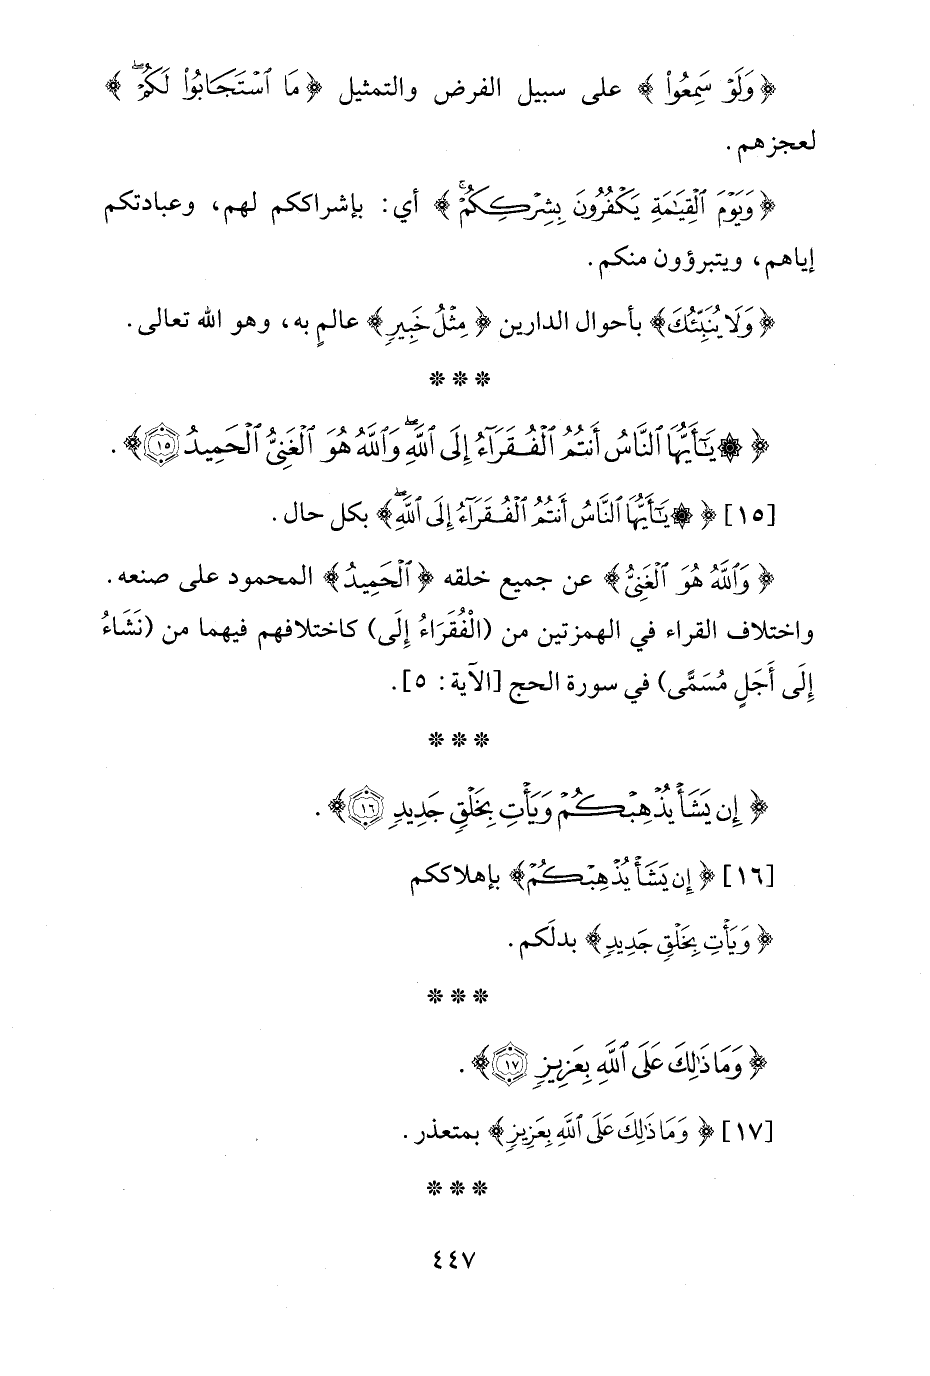 ﴿وَلَوْ سَمِعُوا۟﴾ على سبيل الفرض والتمثيل ﴿مَا ٱسْتَجَابُوا۟ لَكُمْ ۖ﴾
لعجزهم.
﴿وَيَوْمَ ٱلْقِيَٰمَةِ يَكْفُرُونَ بِشِرْكِكُمْ ۚ﴾ أي: بإشراككم لهم، وعبادتكم
إياهم، ويتبرؤون منكم.
﴿وَلَا يُنَبِّئُكَ﴾ بأحوال الدارين ﴿مِثْلُ خَبِيرٍ﴾ عالمٍ به، وهو الله تعالى.
* * *
﴿۞ يَٰٓأَيُّهَا ٱلنَّاسُ أَنتُمُ ٱلْفُقَرَآءُ إِلَى ٱللَّهِ ۖ وَٱللَّهُ هُوَ ٱلْغَنِىُّ ٱلْحَمِيدُ ١٥﴾.
[١٥] ﴿۞ يَٰٓأَيُّهَا ٱلنَّاسُ أَنتُمُ ٱلْفُقَرَآءُ إِلَى ٱللَّهِ ۖ﴾ بكل حال.
﴿وَٱللَّهُ هُوَ ٱلْغَنِىُّ﴾ عن جميع خلقه ﴿ٱلْحَمِيدُ﴾ المحمود على صنعه.
واختلاف القراء في الهمزتين من (الْفُقَرَاءُ إِلَى) كاختلافهم فيهما من (نَشَاءُ
إِلَى أَجَلٍ مُسَمًّى) في سورة الحج [الآية: ٥].
* * *
﴿إِن يَشَأْ يُذْهِبْكُمْ وَيَأْتِ بِخَلْقٍ جَدِيدٍ ١٦﴾.
[١٦] ﴿إِن يَشَأْ يُذْهِبْكُمْ﴾ بإهلاككم
﴿وَيَأْتِ بِخَلْقٍ جَدِيدٍ﴾ بدلَكم.
* * *
﴿وَمَا ذَٰلِكَ عَلَى ٱللَّهِ بِعَزِيزٍ ١٧﴾.
[١٧] ﴿وَمَا ذَٰلِكَ عَلَى ٱللَّهِ بِعَزِيزٍ﴾ بمتعذر.
* * *
٤٤٧